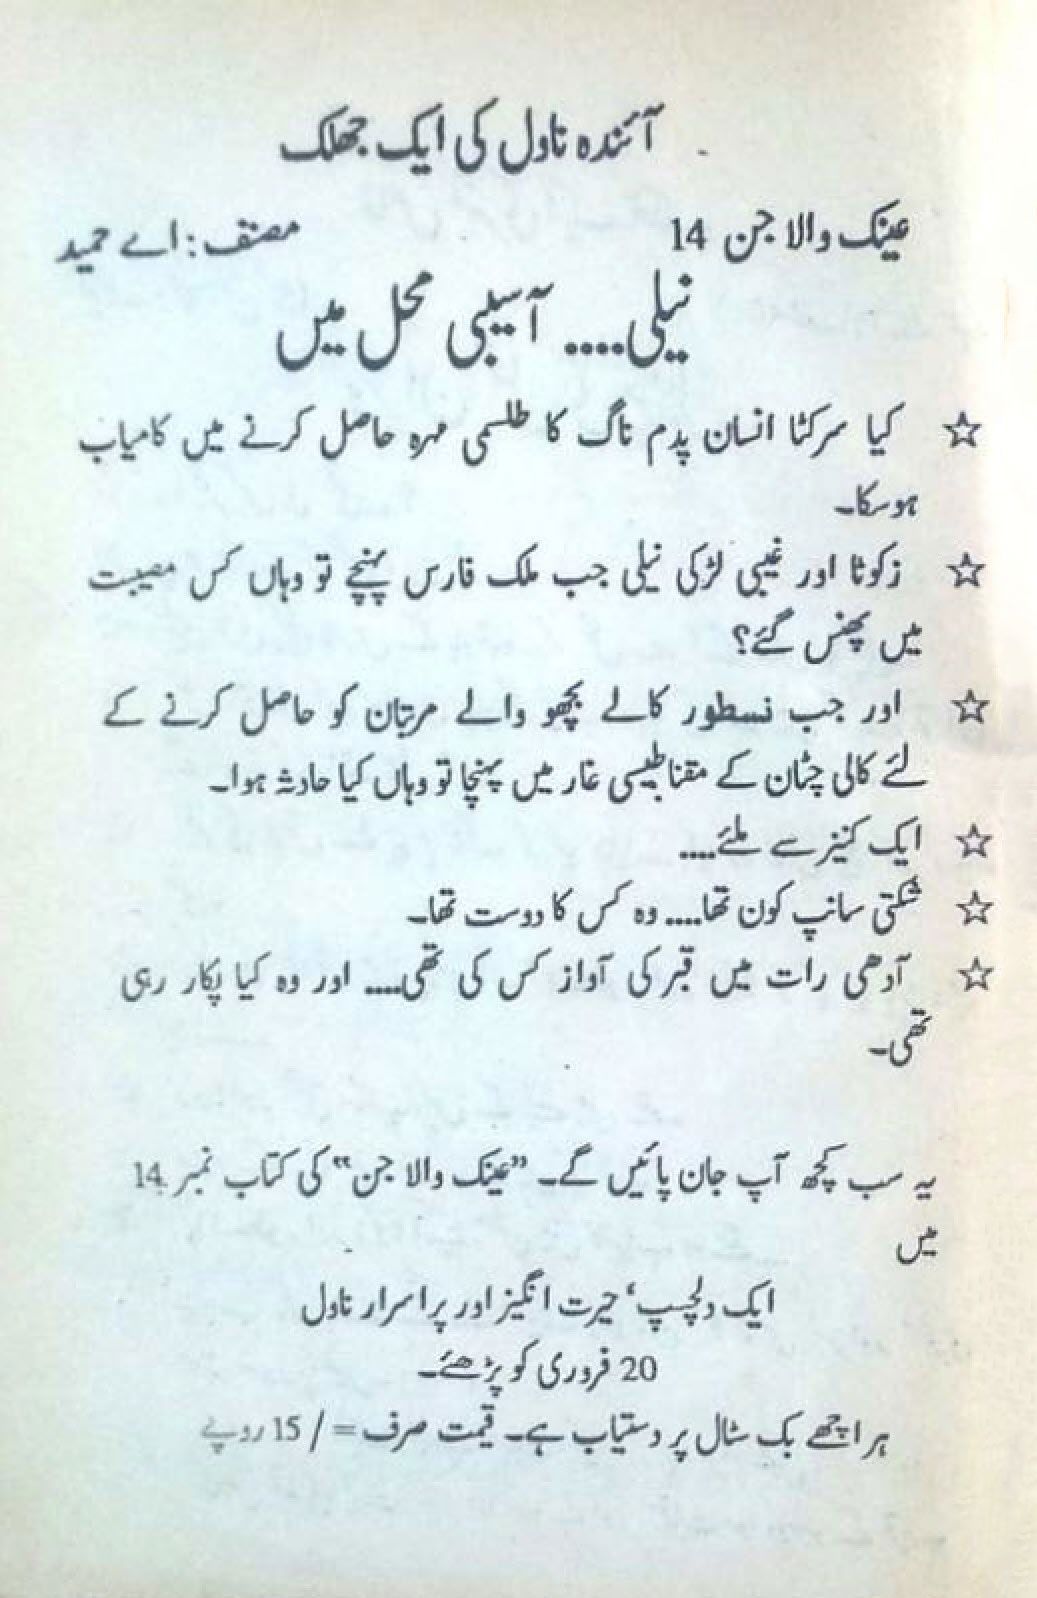 آئندہ ناول کی ایک جھلک
عینک والا جن 14 مصنف: اے حمید
نیلی.... آسیبی محل میں
☆ کیا سرکٹا انسان پدم ناگ کا طلسمی مہرہ حاصل کرنے میں کامیاب
ہوسکا۔
☆ زکوٹا اور غیبی لڑکی نیلی جب ملک فارس پہنچے تو وہاں کس مصیبت
میں پھنس گئے؟
☆ اور جب نسطور کالے بچھو والے مرتبان کو حاصل کرنے کے
لئے کالی چٹان کے مقناطیسی غار میں پہنچا تو وہاں کیا حادثہ ہوا۔
☆ ایک کنیز سے ملئے....
☆ شکتی سانپ کون تھا.... وہ کس کا دوست تھا۔
☆ آدھی رات میں قبر کی آواز کس کی تھی.... اور وہ کیا پکار رہی
تھی۔
یہ سب کچھ آپ جان پائیں گے۔ ”عینک والا جن“ کی کتاب نمبر 14
میں
ایک دلچسپ‘ حیرت انگیز اور پراسرار ناول
20 فروری کو پڑھئے۔
ہر اچھے بک سٹال پر دستیاب ہے۔ قیمت صرف =/ 15 روپے